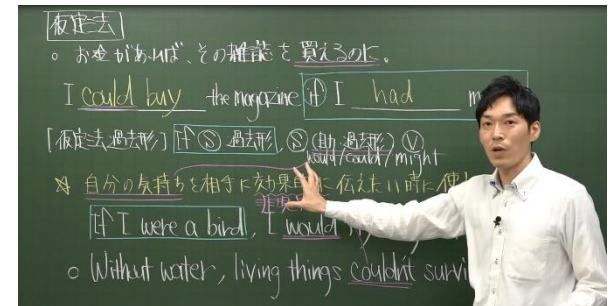 仮定法
○ お金があれば、その雑誌を買えるのに。
I could buy the magazine if I had m
[仮定法過去形] If Ⓢ 過去形, Ⓢ (助・過去形) Ⓥ
would/could/might
自分の気持ちを相手に効果的に伝えたい時に使
If I were a bird, I would
○ Without water, living things couldn't survi